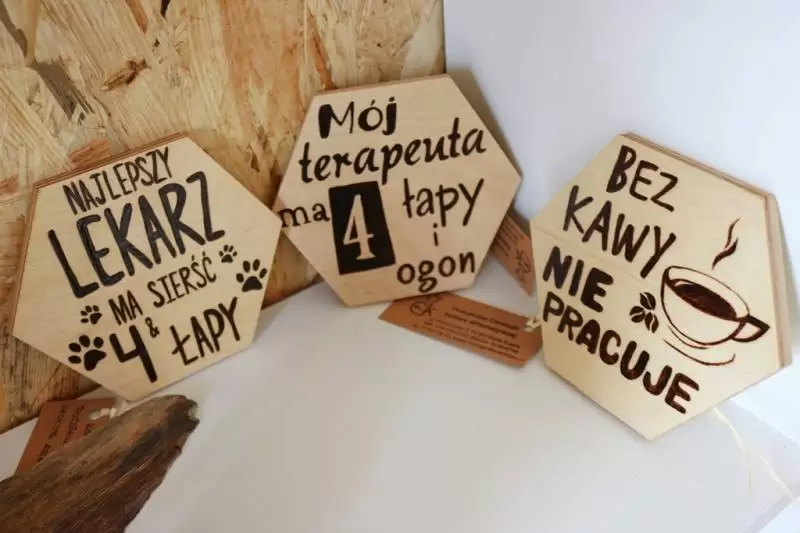 NAJLEPSZY
LEKARZ
MA SIERŚĆ
4 & ŁAPY
Mój
terapeuta
ma 4 łapy
i
ogon
BEZ
KAWY
NIE
PRACUJE